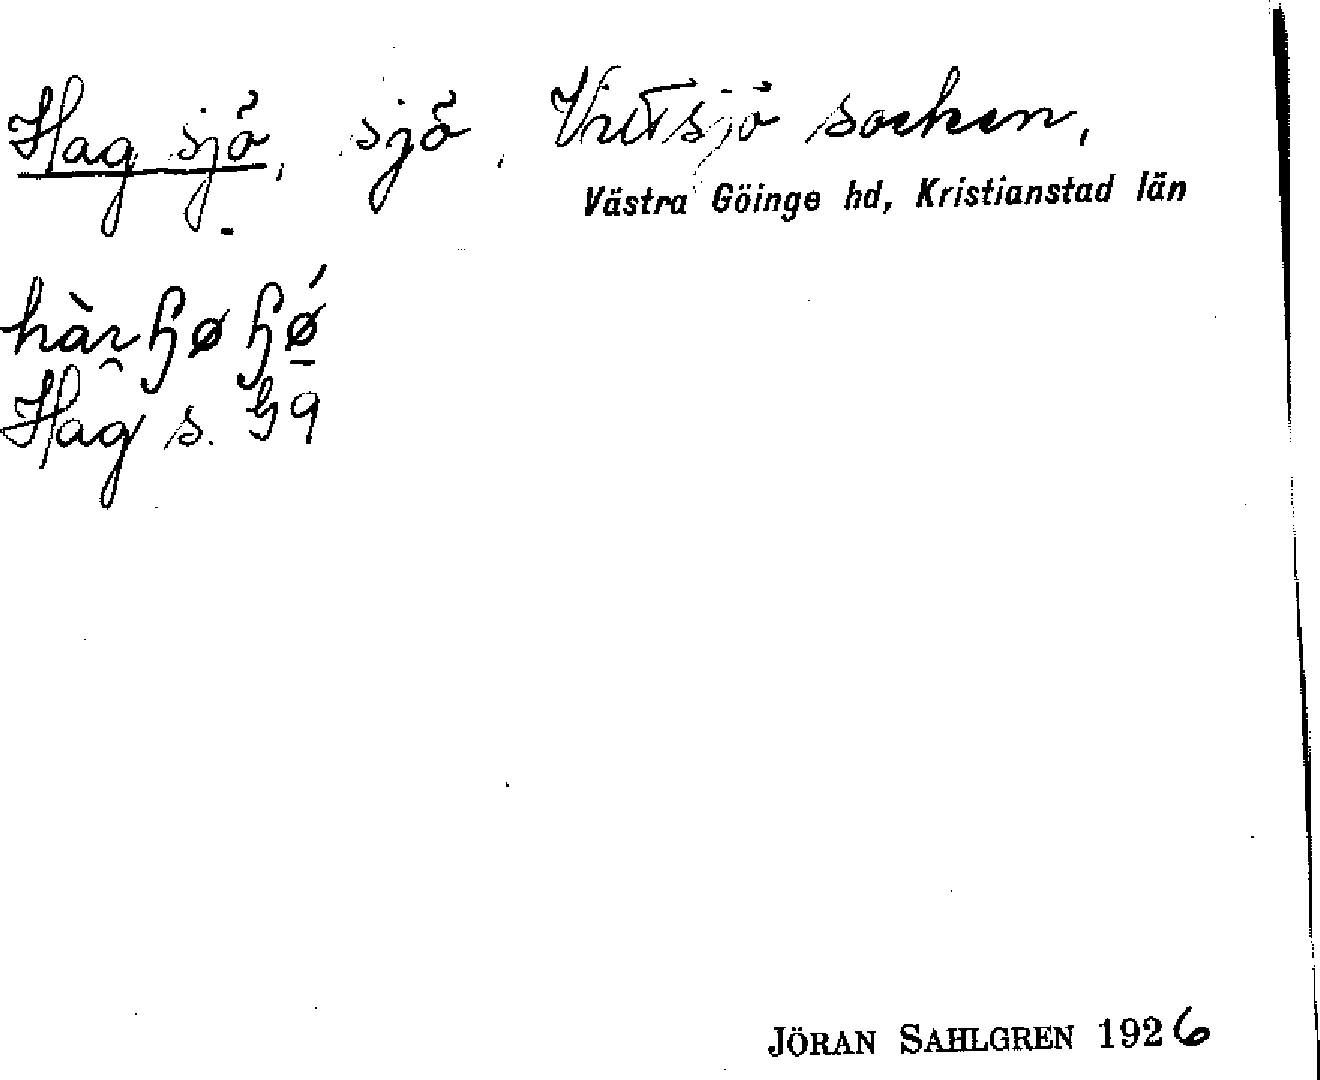 Hag sjö, sjö, Vittsjö socken,
Västra Göinge hd, Kristianstad län
Hag s.
JÖRAN SAHLGREN 1926